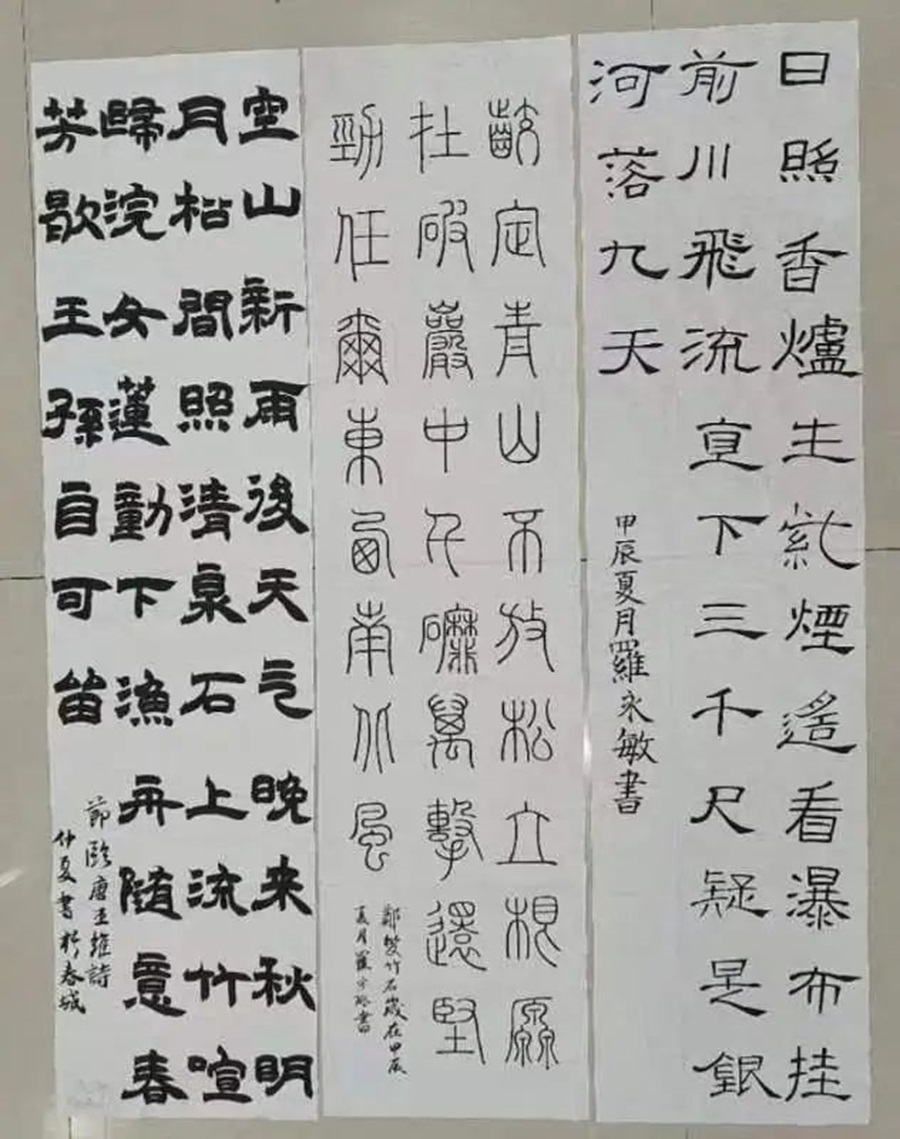 日照香爐生紫煙遙看瀑布挂
前川飛流直下三千尺疑是銀
河落九天
甲辰夏月羅永敏書
齩定青山不放松立根原
在破巖中千礳萬擊還堅
勁任爾東西南北風
鄭燮竹石歲在甲辰
夏月羅永敏書
空山新雨後天气晚来秋明
月松間照清泉石上流竹喧
歸浣女蓮動下漁舟随意春
芳歇王孫自可留
節臨唐王維詩
仲夏書於春城